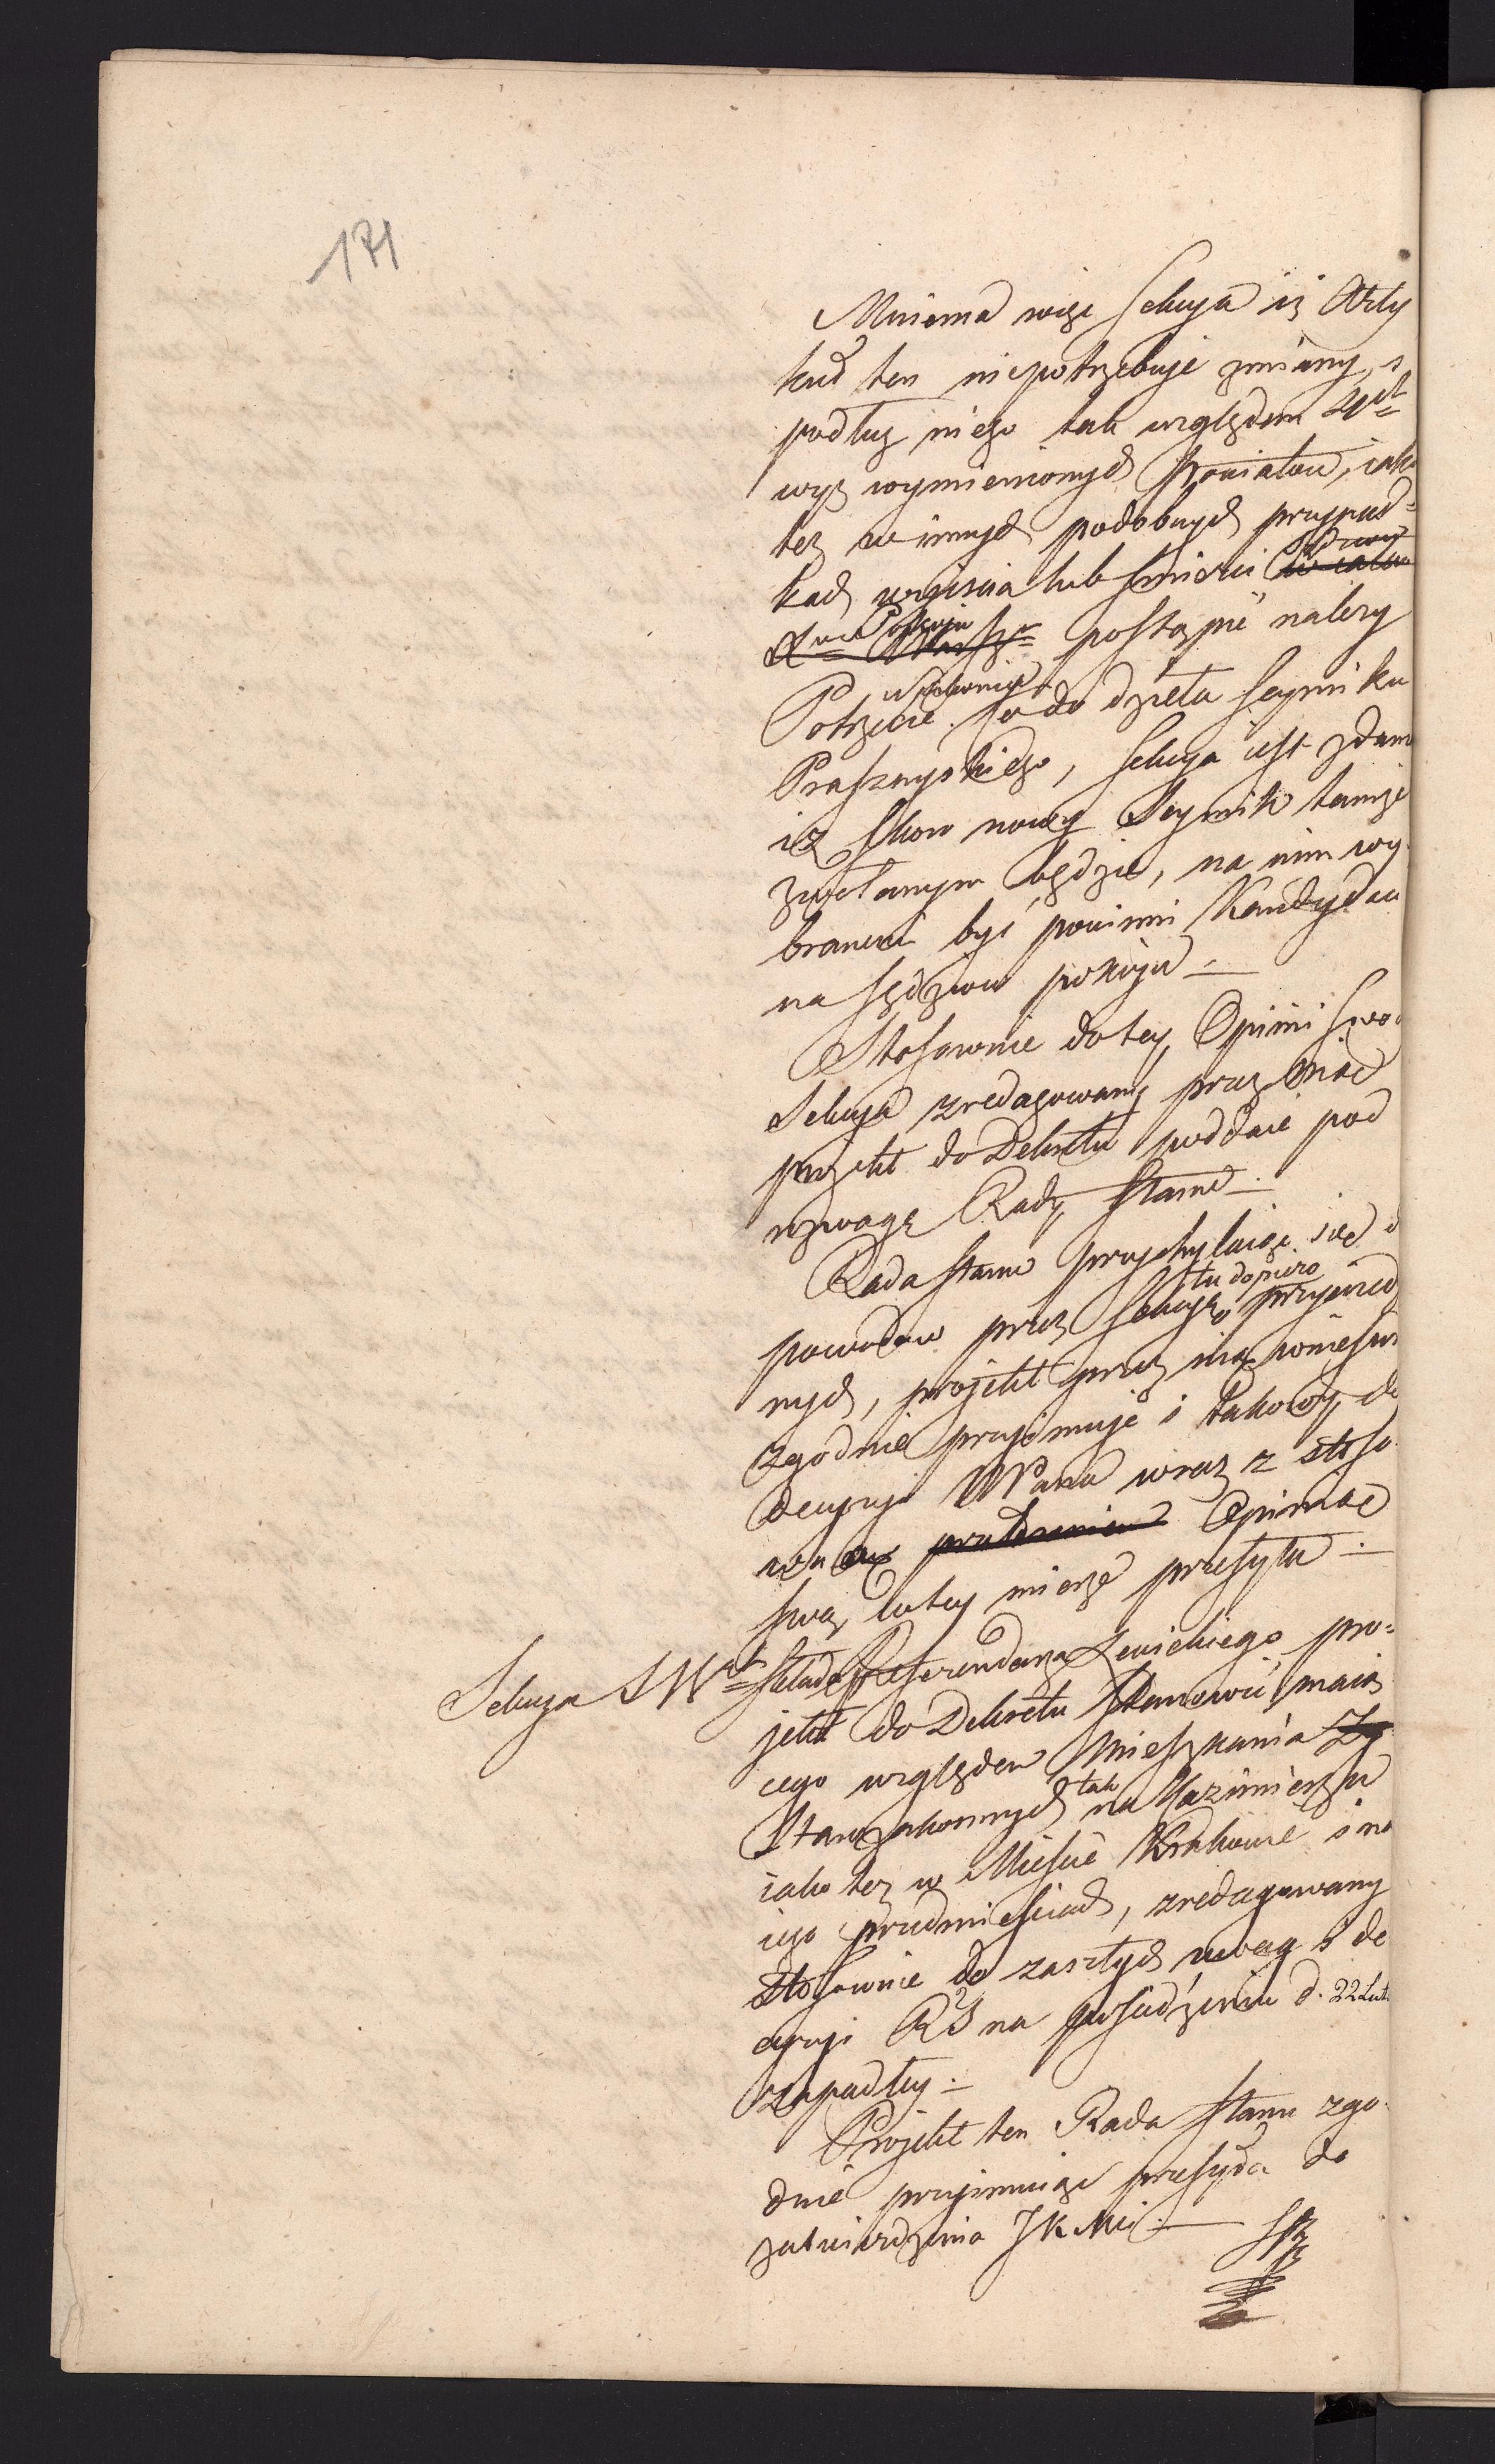 171
Mniema więc Sekcya iż Arty
kuł ten niepotrzebuje zmiany, i
podług niego tak względem
wyż wymienionych Powiatów, iak
też w innych podobnych przypad=
kach wyiścia lub śmierci Sędziów
Pokoju postąpić należy
Potrzecie. w rahunie Co do dzieła Seymiku
Przasznyskiego, Sekcya iest zdania
iż skoro nowy Seymik tamże
zwołanym będzie, na nim wy
branemi być powinni Kandydaci
na Sędziów pokoju –
Stosownie do tey Opinii swoi
Sekcya zredagowany przez nią
projekt do Dekretu poddaie pod
rozwagę Rady Stanu –
Rada Stanu przychylaiąc się d
powodów przez Sekcyę tu dopiero przywied
nych, projekt przez nią wniesio
zgodnie przyimuje i takowy do
decyzyi WPana wraz z stoso
wną Opinią
swą w tey mierze przesyła –
Sekcya SWna składa Referendarza Lewickiego pro=
jekt do Dekretu stanowić maią
cego względem Mieszkania
Starozakonnych tak na Kazimierzu
iako też w Mieście Krakowie i na
iego przedmieściach, zredagowany
stosownie do zaszłych uwag i de
cyzyi RS na posiedzeniu d. 22 Lut.
zapadłey –
Projekt ten Rada Stanu zgo
dnie przyimuiąc przesyła do
zatwierdzenia JKMci –